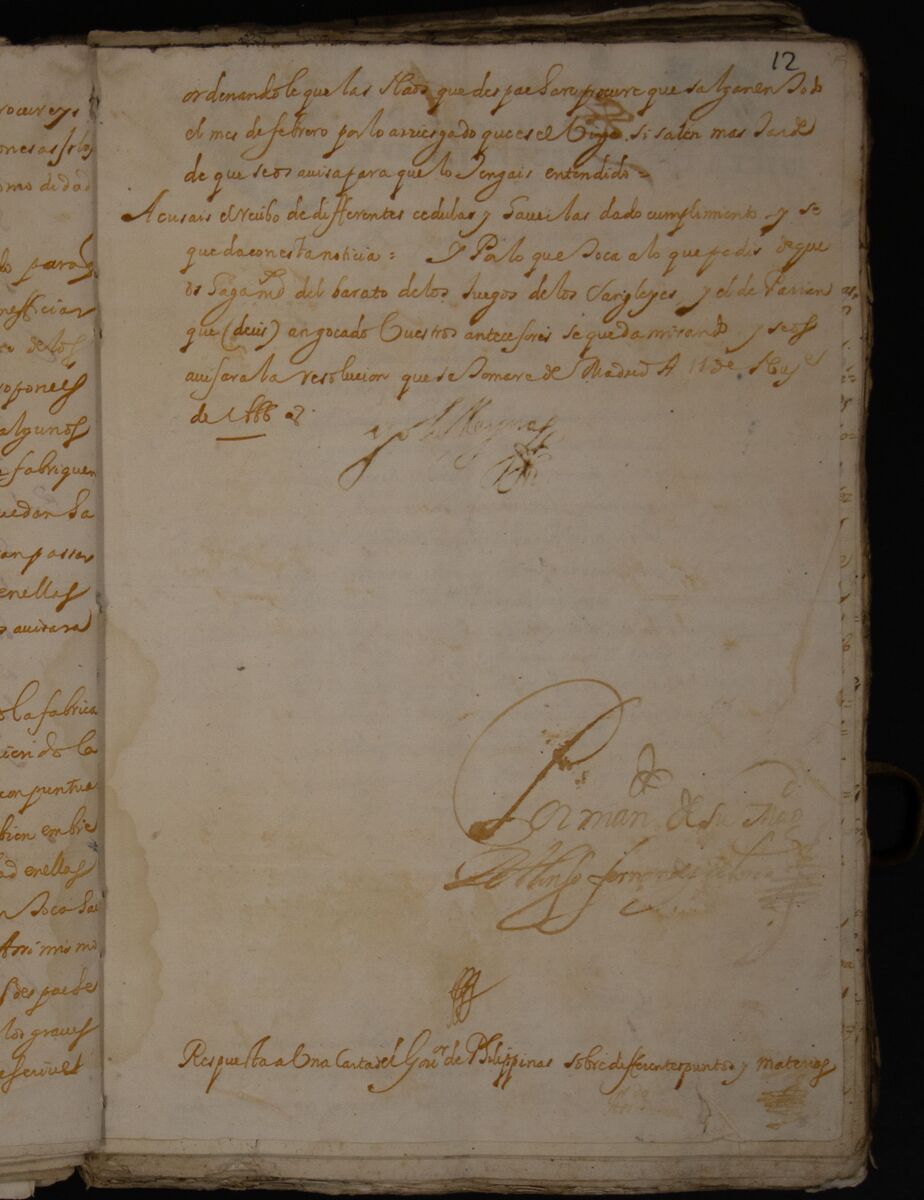 12
ordenandole que las Naos que despachare procure que salgan en todo
el mes de febrero por lo arriesgado que es el Viage si salen mas tarde
de que se os auisa para que lo tengais entendido =
Acusais el reciuo de differentes cedulas y hauerlas dado cumplimiento y se
queda con esta noticia = Y Por lo que toca a lo que pedis de que
os haga md del barato de los Juegos de los Sangleyes y el de Parian
que (decis) an gocado Vuestros antecesores se queda mirando y se os
auisara la resolucion que se tomare de Madrid A 11 de
de
yo la Reyna
Por mando de su Magd
fernandez
Respuesta a Una Carta del Gouor de Philippinas sobre differentes puntos y materias
rouereys
ones a
omo didad
lo para
nefficiar
de los
algunos
fabriquen
quedan ha
an passar
en ellas
auisara
la fabrica
iendo la
con puntua
bien
ad en ellas
toca ha
Assimismo
los graues